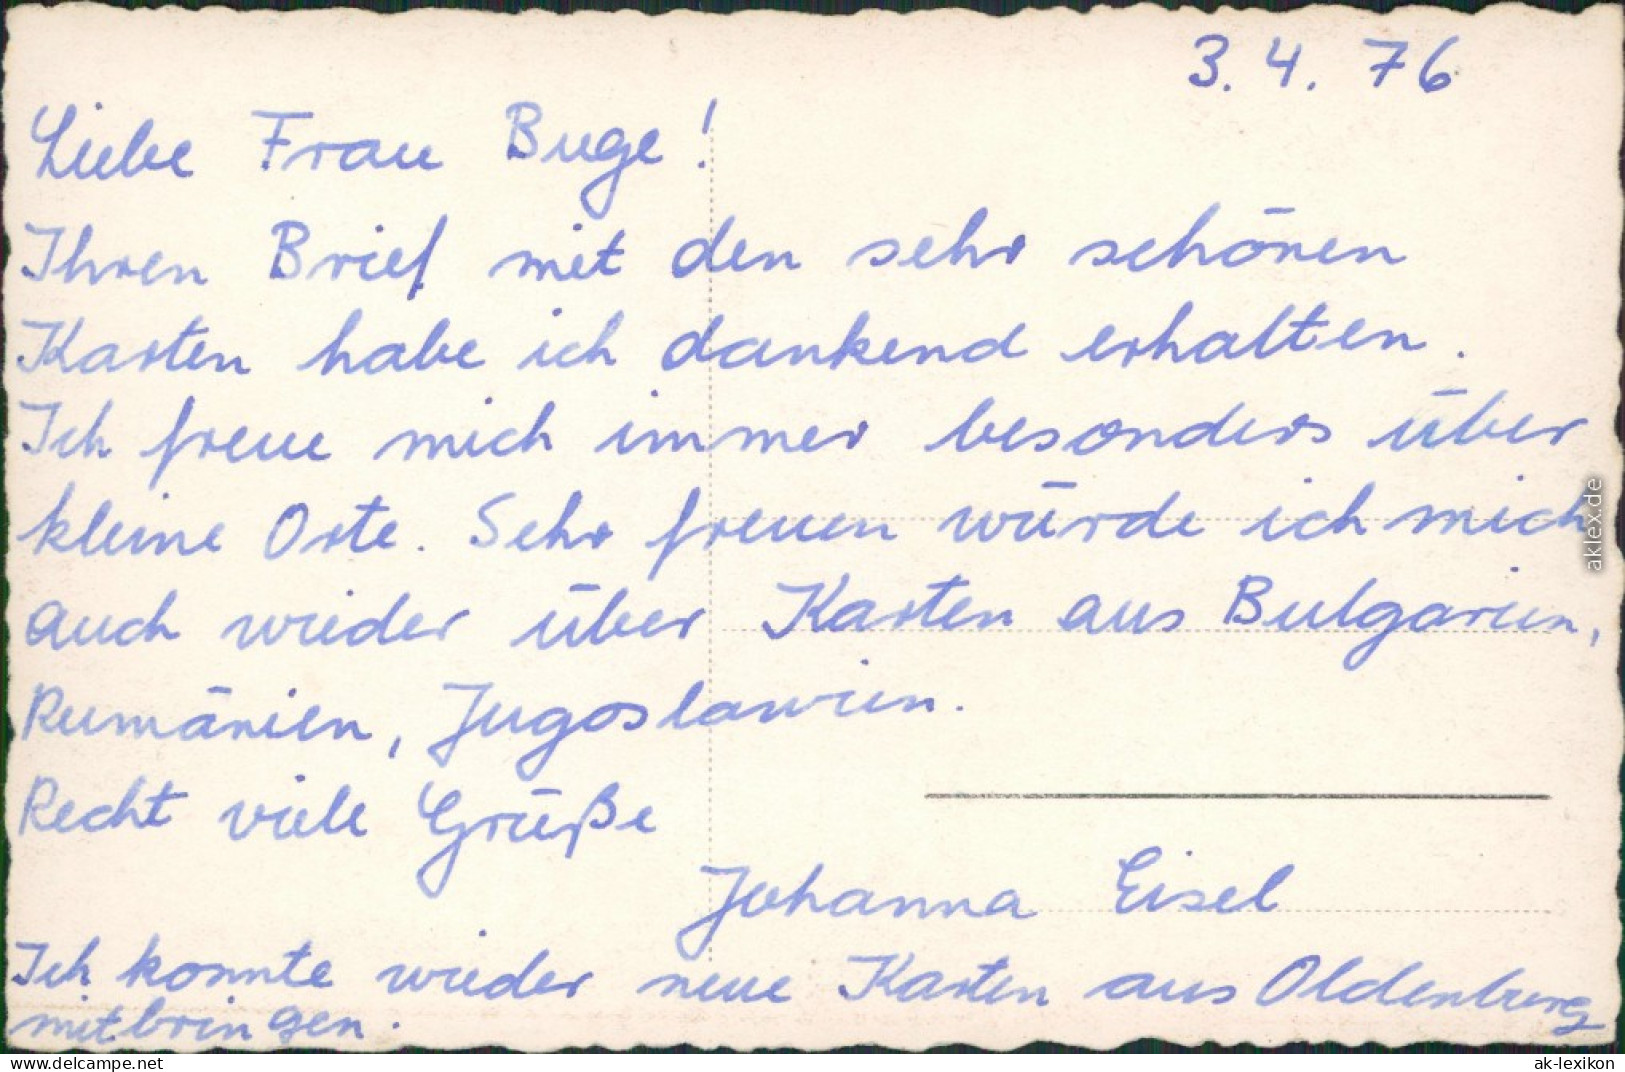 3. 4. 76
Liebe Frau Buge!
Ihren Brief mit den sehr schönen
Karten habe ich dankend erhalten.
Ich freue mich immer besonders über
kleine Orte. Sehr freuen würde ich mich
auch wieder über Karten aus Bulgarien,
Rumänien, Jugoslawien.
Recht viele Grüße
Johanna Eisel
Ich konnte wieder neue Karten aus Oldenburg
mitbringen.
aklex.de
www.delcampe.net
ak-lexikon